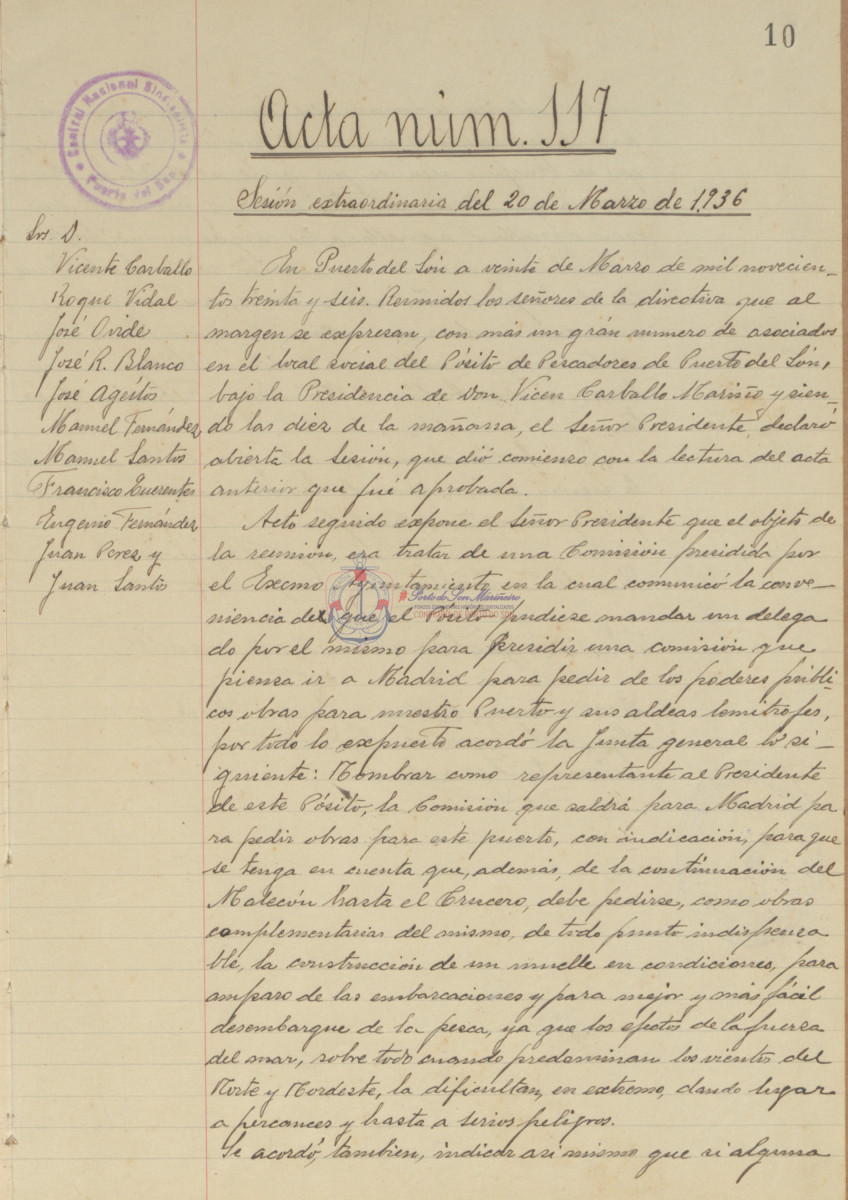 10
Central Nacional Sindicalista
Puerto del Son
Acta núm. 117
Sesión extraordinaria del 20 de Marzo de 1,936
Srs. D.
Vicente Carballo
Roque Vidal
José Ovide
José R. Blanco
José Ageitos
Manuel Fernández
Manuel Santos
Francisco
Eugenio Fernández
Juan Perez y
Juan Santos
En Puerto del Són a veinte de Marzo de mil novecien-
tos treinta y seis. Reunidos los señores de la directiva que al
margen se expresan, con más un grán numero de asociados
en el local social del Pósito de Pescadores de Puerto del Són,
bajo la Presidencia de Don Vicen Carballo Mariño y sien-
do las diez de la mañana, el Señor Presidente declaró
abierta la sesión, que dió comienzo con la lectura del acta
anterior que fué aprobada.
Acto seguido expone el Señor Presidente que el objeto de
la reunión, era tratar de una Comisión presidida por
el Excmo Ayuntamiento en la cual comunicó la conve-
niencia de que el Pósito pudiese mandar un delega
do por el mismo para presidir una comisión que
piensa ir a Madrid para pedir de los poderes públi-
cos obras para nuestro Puerto y sus aldeas lemitrofes,
por todo lo expuesto acordó la Junta general lo si-
guiente: Nombrar como representante al Presidente
de este Pósito, la Comisión que saldrá para Madrid pa
ra pedir obras para este puerto, con indicación, para que
se tenga en cuenta que, además, de la continuación del
Malecón hasta el Crucero, debe pedirse, como obras
complementarias del mismo, de todo punto indispensa
ble, la construcción de un muelle en condiciones, para
amparo de las embarcaciones y para mejor y más fácil
desembarque de la pesca, ya que los efetos de la fuerza
del mar, sobre todo cuando predominan los vientos del
Norte y Nordeste, la dificultan, en extremo, dando lugar
a percances y hasta a serios peligros.
Se acordó, tambien, indicar asi mismo que si alguna
Porto do Son Mariñeiro